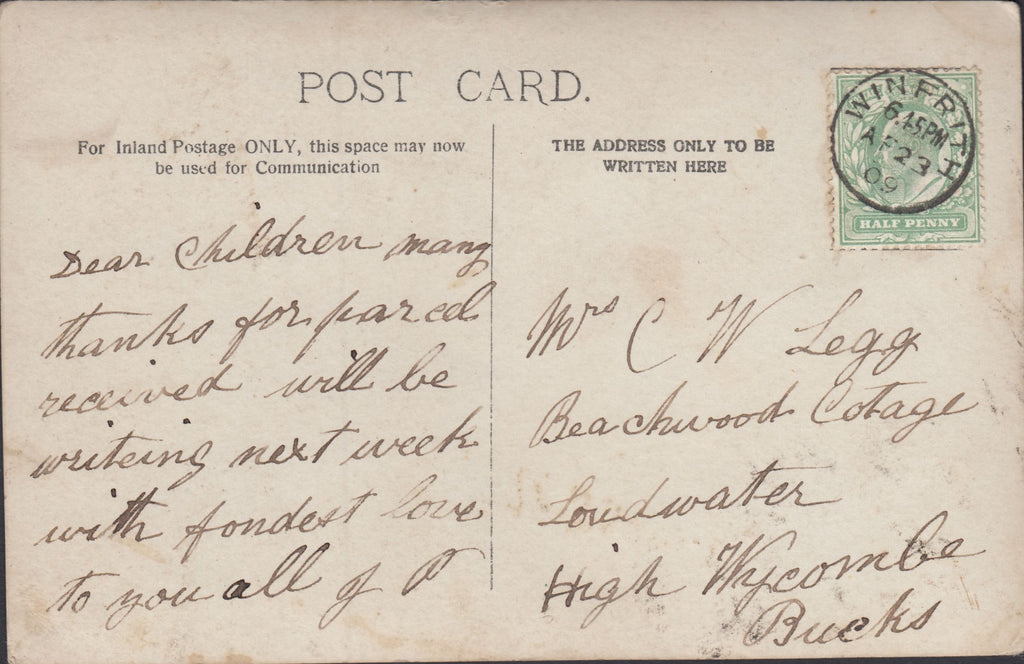 POST CARD.
For Inland Postage ONLY, this space may now
be used for Communication
THE ADDRESS ONLY TO BE
WRITTEN HERE
WINFRITH
6.45PM
AP 23
09
HALF PENNY
Dear Children many
thanks for parcel
received will be
writeing next week
with fondest love
to you all
Mrs C W Legg
Beachwood Cotage
Loudwater
High Wycombe
Bucks